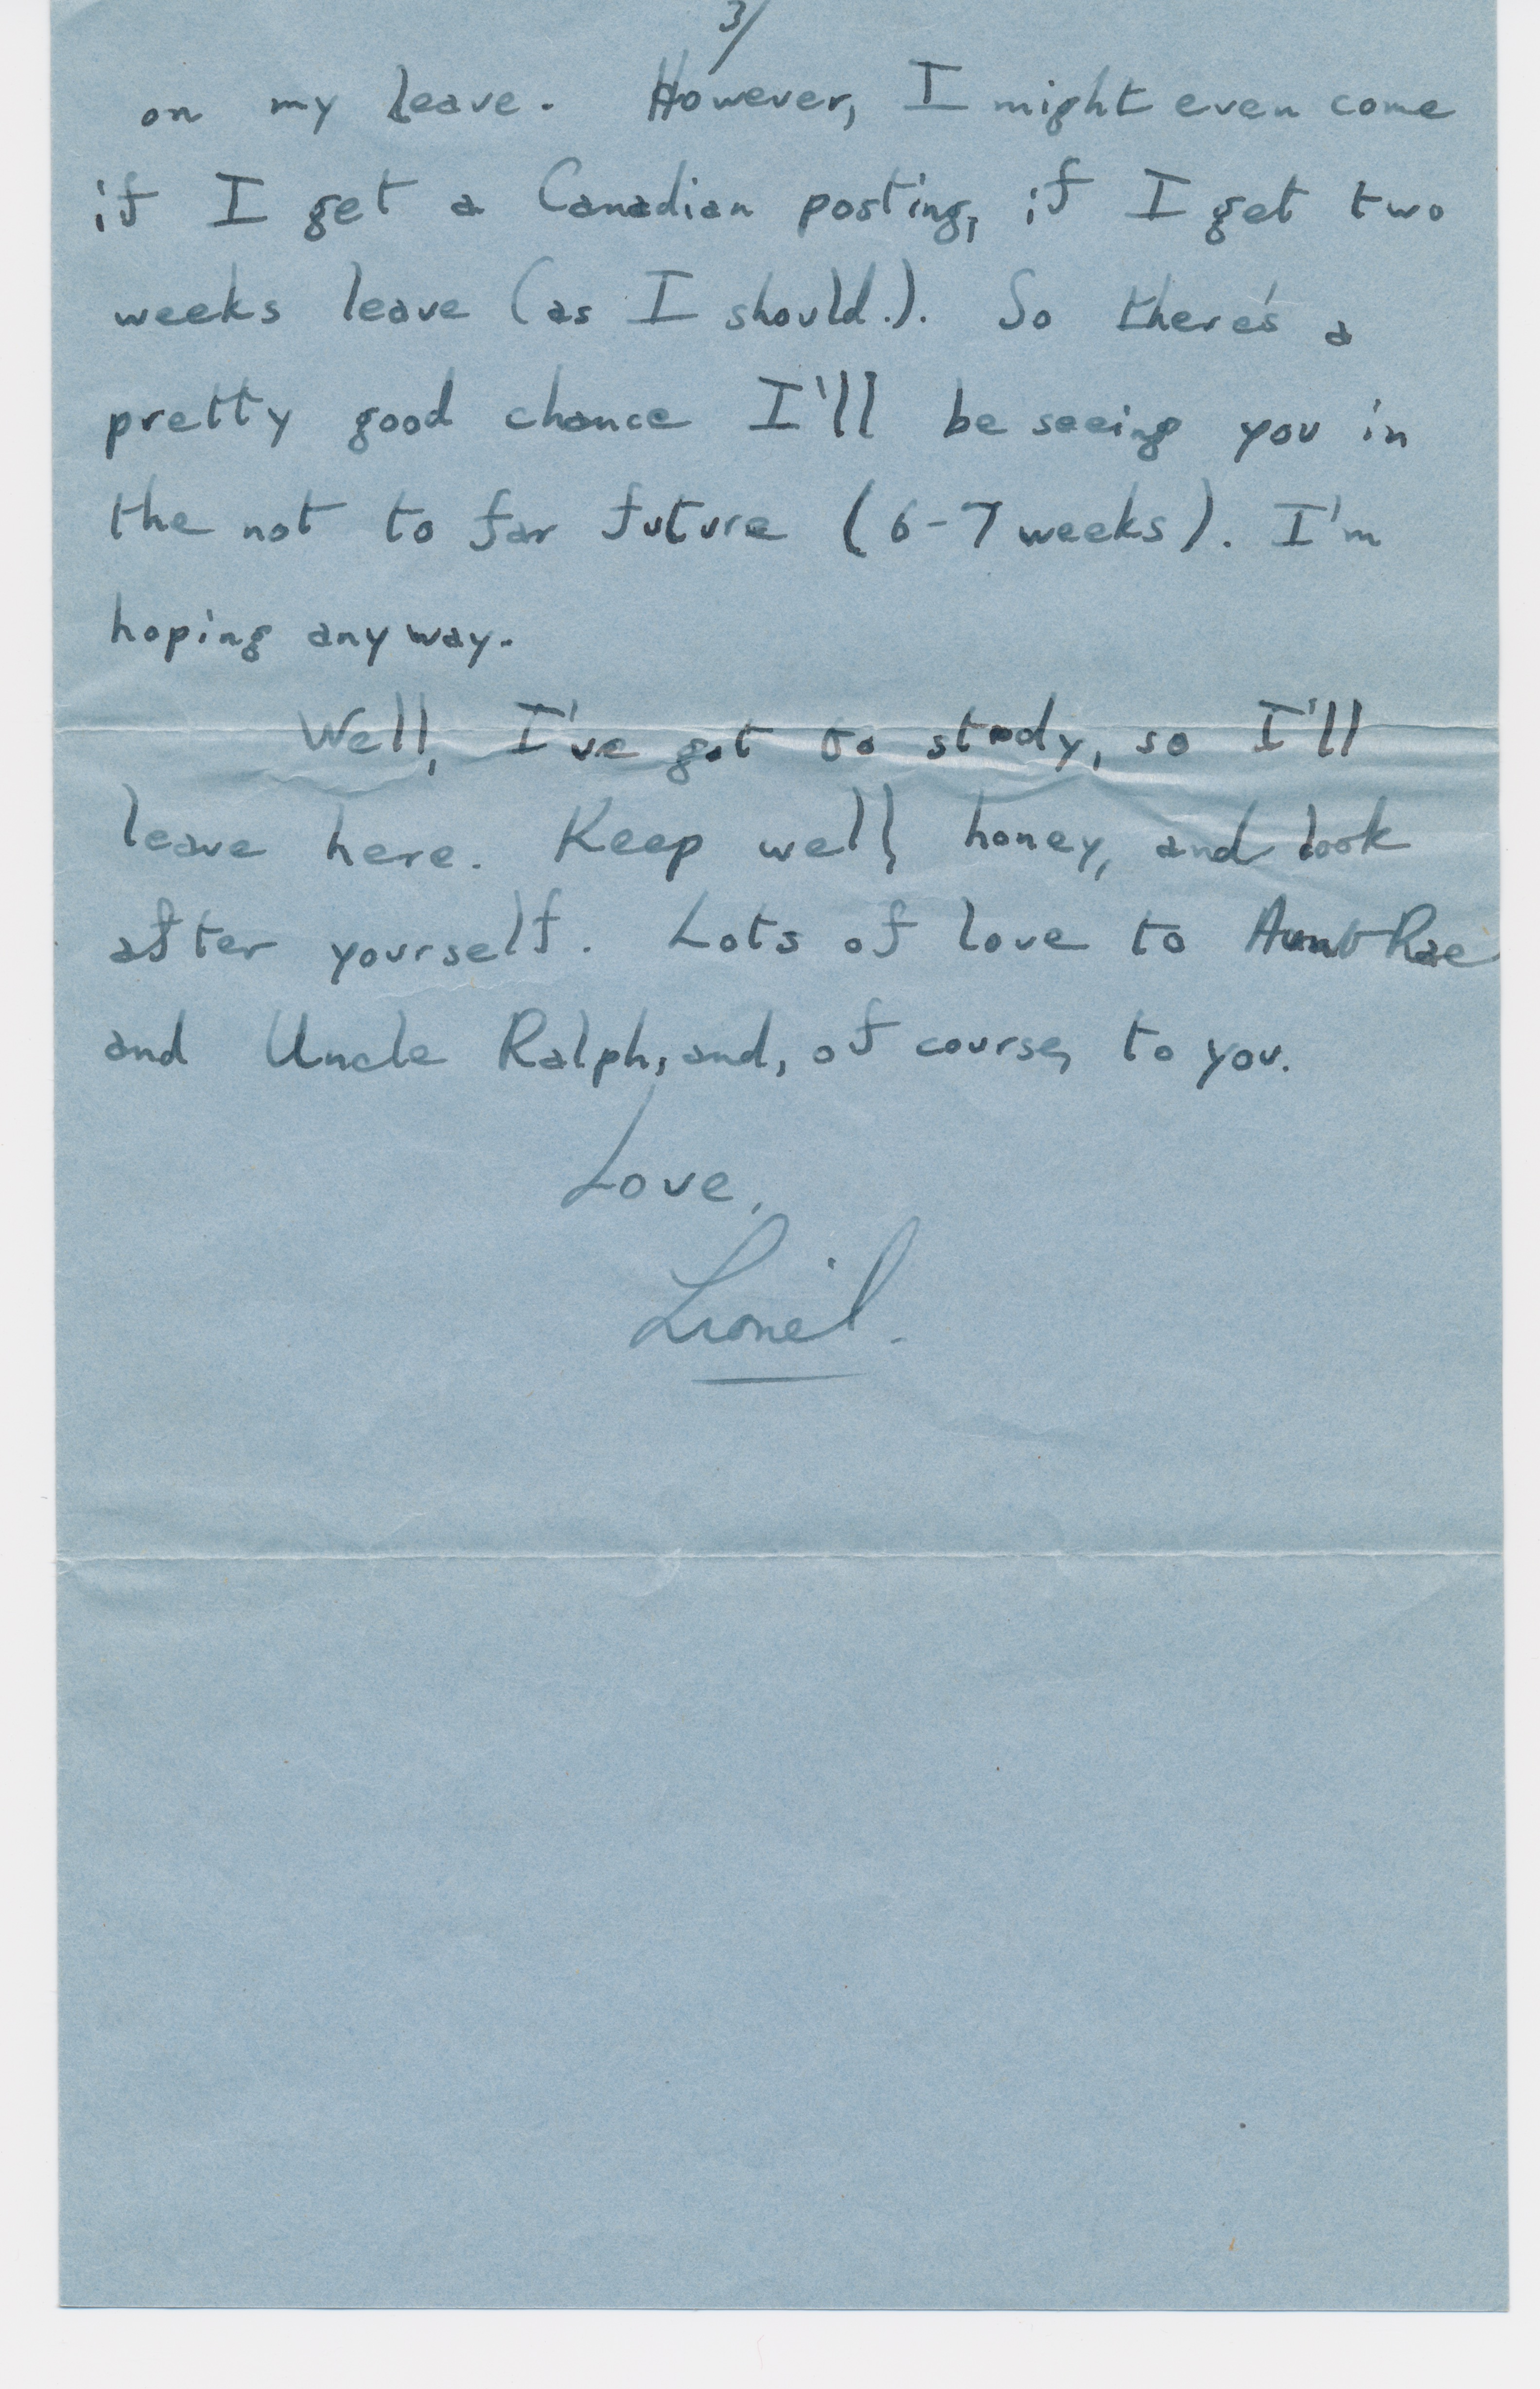 3/
on my leave. However, I might even come
if I get a Canadian posting, if I get two
weeks leave (as I should.). So there's a
pretty good chance I'll be seeing you in
the not to far future (6-7 weeks). I'm
hoping anyway.
Well, I've got to study, so I'll
leave here. Keep well, honey, and look
after yourself. Lots of love to Aunt Rae
and Uncle Ralph, and, of course, to you.
Love,
Lionel.